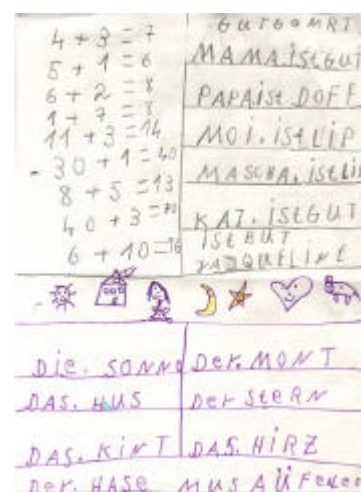 4 + 3 = 7
5 + 1 = 6
6 + 2 = 8
1 + 7 = 8
11 + 3 = 14
30 + 1 = 40
8 + 5 = 13
40 + 3 = 70
6 + 10 = 16
MAMA.iStGUT
PAPAiSt DOFF
MOi.iStLiP
MASCHA.iStLiP
KAT.iStGUT
iStGUT
JAQUELINE
DiE. SONNE
DAS. HUS
DAS. KiNT
DER. HASE
DER. MONT
DER SteRN
DAS. HiRZ
MUS